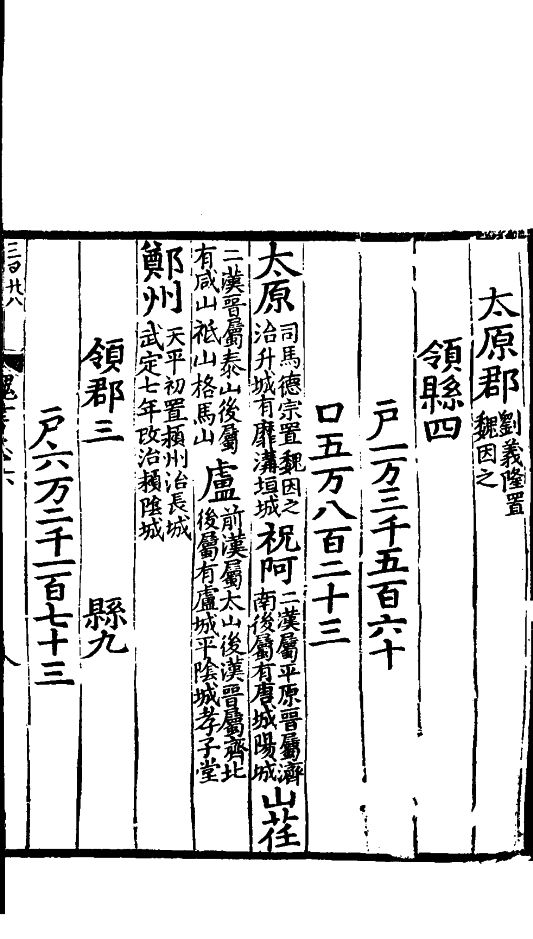 太原郡劉義隆置魏因之
領縣四
戸一万三千五百六十
口五万八百二十三
太原司馬德宗置魏因之治升城有靡溝垣城祝阿二漢屬平原晉屬濟南後屬有唐城陽城山茌
二漢晉屬泰山後屬有咸山祗山格馬山盧前漢屬太山後漢晉屬齊北後屬有盧城平陰城孝子堂
鄭州天平初置潁州治長城武定七年改治潁陰城
領郡三 縣九
戸六万二千一百七十三